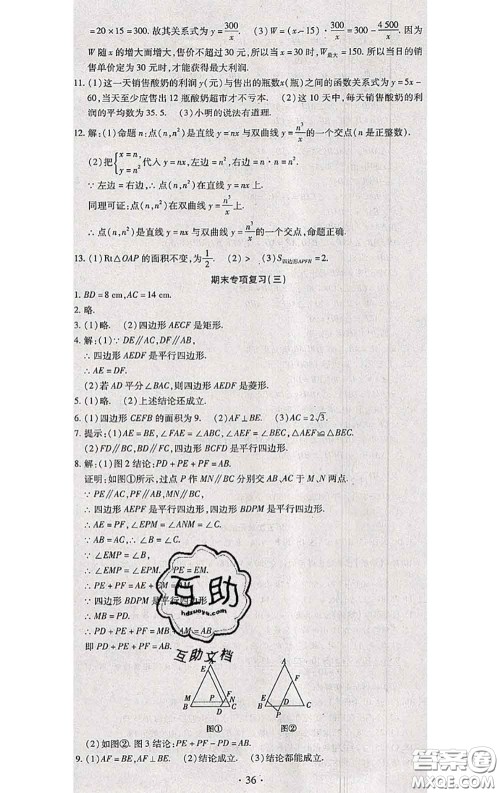 =20×15=300. 故其关系式为y=300/x. (3)W=(x-15)·300/x=300-4 500/x. 因为
W随x的增大而增大,售价不超过30元,所以当x=30时,W最大=150. 所以当日的销
售单价定为30元时,才能获得最大利润.
11. (1)这一天销售酸奶的利润y(元)与售出的瓶数x(瓶)之间的函数关系式为y=5x-
60,当天至少应售出12瓶酸奶超市才不亏本. (2)这10天中,每天销售酸奶的利
润的平均数为35.5. (3)小明的说法有道理.
12. 解:(1)命题n:点(n,n²)是直线y=nx与双曲线y=n³/x的一个交点(n是正整数).
(2)把{x=n, y=n²代入y=nx,左边=n²,右边=n·n=n².
∵左边=右边,∴点(n,n²)在直线y=nx上.
同理可证:点(n,n²)在双曲线y=n³/x上.
∴点(n,n²)是直线y=nx与双曲线y=n³/x的一个交点,命题正确.
13. (1)Rt△OAP的面积不变,为1/2. (2)> (3)S四边形APFN=2.
期末专项复习(三)
1. BD=8 cm,AC=14 cm.
2. 略.
3. (1)略. (2)四边形AECF是矩形.
4. 解:(1)∵DE∥AC,DF∥AB,
∴四边形AEDF是平行四边形.
∴AE=DF.
(2)若AD平分∠BAC,则四边形AEDF是菱形.
5. (1)略. (2)上述结论还成立.
6. (1)四边形CEFB的面积为9. (2)AF⊥BE. (3)AC=2√3.
7. 提示:(1)AE=BE,∠FAE=∠ABC,AF=BC,△AEF≌△BEC.
8. 解:(1)图2结论:PD+PE+PF=AB.
证明:如图①所示,过点P作MN∥BC分别交AB于M、N两点.
∵PE∥AC,PF∥AB,MN∥BC,
∴四边形AEPF是平行四边形,四边形BDPM是平行四边形.
∴AE=PF,∠EPM=∠ANM=∠C.
∵AB=AC,∴∠B=∠C.
∴∠EMP=∠B.
∴∠EMP=∠EPM. PE=EM.
∴PE+PF=AE+EM=AM.
∵四边形BDPM是平行四边形,
∴MB=PD.
∴PD+PE+PF=MB+AM=AB.
即PD+PE+PF=AB.
互助
hdzuoye.com
互助文档
A
E
M P F N
B D C
图①
A
E
F
B D C
P
图②
(2)如图②. 图3结论:PE+PF-PD=AB.
9. (1)AF=BE,AF⊥BE. (2)结论成立. (3)结论都能成立.
· 36 ·
答案圈
MXQE.COM